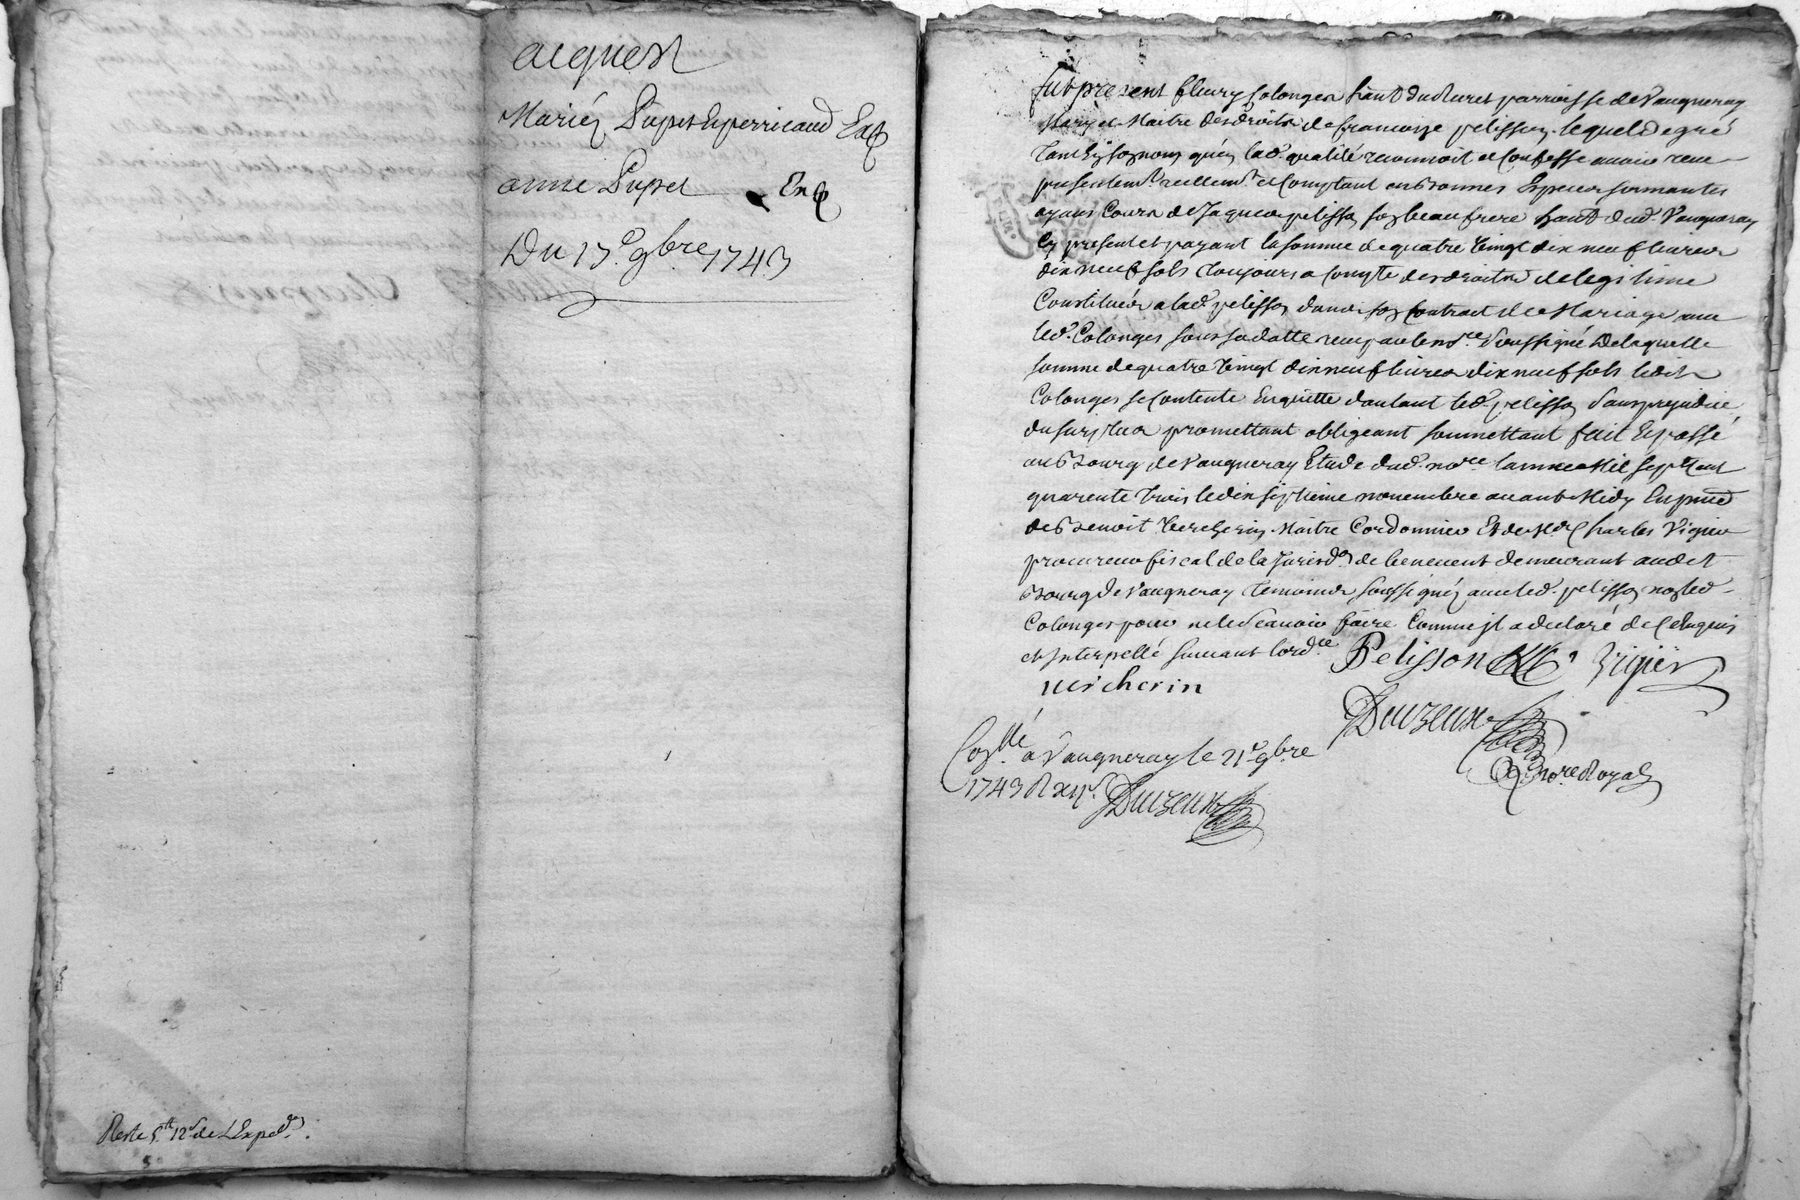 acquest
Mariéz Dupet Et perricaud Exp
anne Dupet Exp
Du 17e 9bre 1743
Reste 5tt 12s de L'Exped.on
fut present fleury Colonges habt du Muret parroisse de Vaugneray
Mary et Maitre des droits de francoize pelisson, lequel de gré
tant En son nom qu'en lad. qualité reconnoit et Confesse avoir receu
presentemt reellemt et Comptant en bonnes Especes sonnantes
ayans Cours de Jaques pelisson son beau frere habt dud. Vaugneray
Cy present et payant la somme de quatre vingt dix neuf livres
dix neuf sols toujours a Compte des droits de legitime
Constitués a lad. pelisson dans son Contract de Mariage avec
led. Colonges sous sa datte receu par le nore soussigné De laquelle
somme de quatre vingt dix neuf livres dix neuf sols ledit
Colonges se Contente En quitte dautant led. pelisson sans prejudice
du surplus promettant obligeant soumettant fait Et passé
au Bourg de Vaugneray Etude dud. nore lan mil sept Cent
quarente trois le dix septieme novembre avant Midy En pnce
de Benoit Vercherin Maitre Cordonnier Et de Me Charles Vigier
procureur fiscal de la Jurisdon de benevent demeurant audit
Bourg de Vaugneray temoins soussignéz avec led. pelisson non led.
Colonges pour ne le Scavoir faire Comme Il a declaré de Ce Enquis
et Interpellé suivant lordce Pelisson Vigier
vercherin
Duizeux
nore Royal
Conllé a Vaugneray le 21e 9bre
1743 R xijs. Duizeux